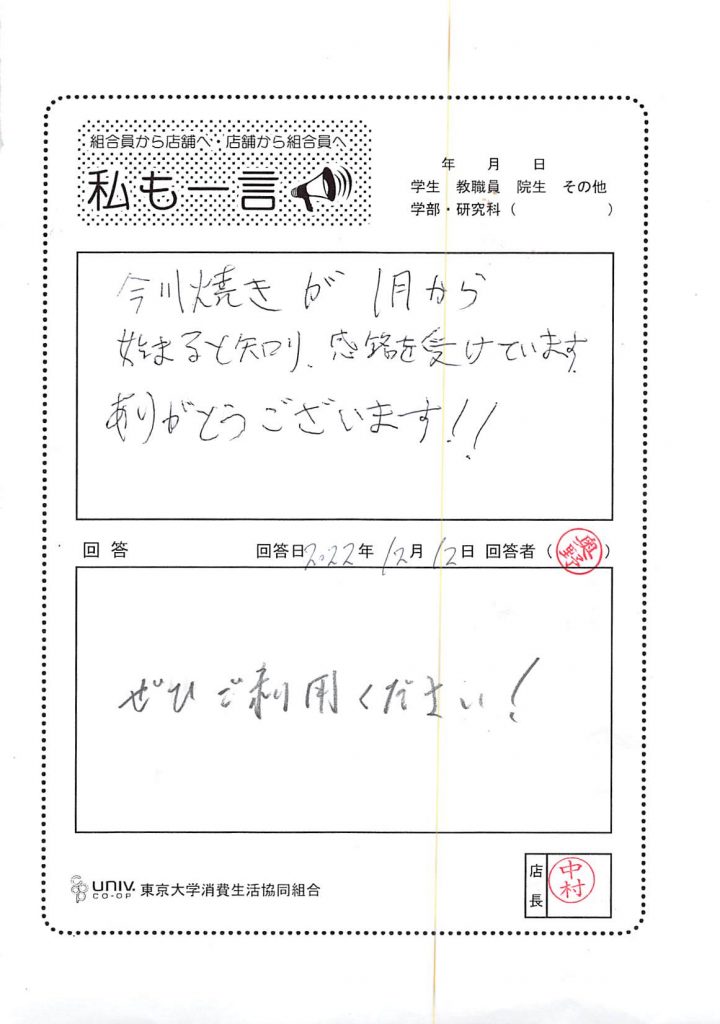 組合員から店舗へ・店舗から組合員へ
私も一言
年 月 日
学生 教職員 院生 その他
学部・研究科（ ）
今川焼きが1月から
始まると知り、感銘を受けています
ありがとうございます!!
回答 回答日2022年12月12日 回答者（奥野）
ぜひご利用ください!
UNIV. CO-OP 東京大学消費生活協同組合
店長 中村